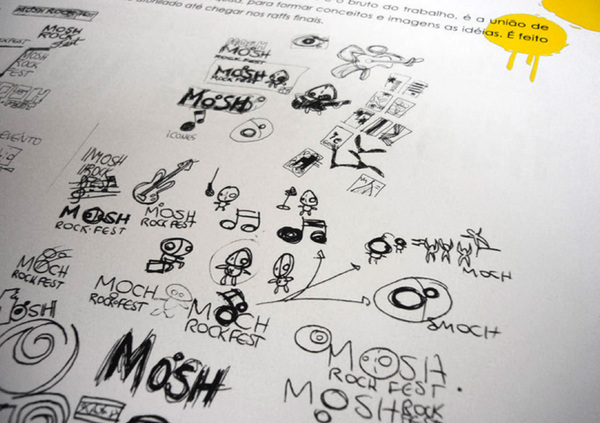 o bruto do trabalho, é a união de
para formar conceitos e imagens as idéias. É feito
até chegar nos raffs finais.
MOSH
ROCK
Fest
MOSH
ROCK
FEST
EVENTO
MOSH
ROCK FEST
MOSH
ROCK FEST
MOSH
ícones
MOSH
ROCK
FEST
MOSH
ROCK-FEST
MOSH
ROCK FEST
MOCH
ROCK FEST
MOCH
ROCK-FEST
MOCH
ROCKFEST
MOCH
MOCH
MOSH
MOSH
MOSH
ROCK FEST.
MOSH ROCK
FEST